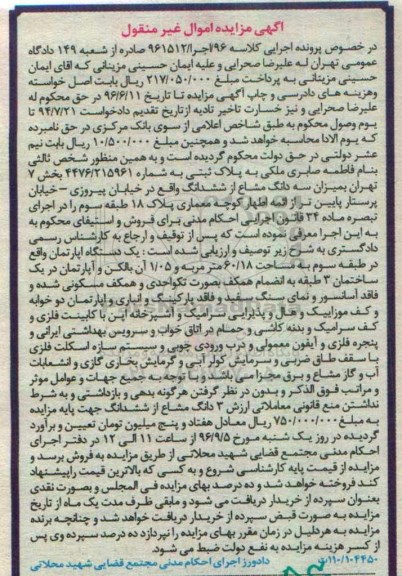 آگهی مزایده اموال غیر منقول
در خصوص پرونده اجرایی کلاسه ۹۶/اجرا/۹۶۱۵۱۲ صادره از شعبه ۱۴۹ دادگاه
عمومی تهران له علیرضا صحرایی و علیه ایمان حسینی مزینانی که آقای ایمان
حسینی مزینانی به پرداخت مبلغ ۲۱۷/۰۵۰/۰۰۰ ریال بابت اصل خواسته
وهزینه های دادرسی و چاپ آگهی مزایده تا تاریخ ۹۶/۶/۱۱ در حق محکوم له
علیرضا صحرایی و نیز خسارت تاخیر تادیه ازتاریخ تقدیم دادخواست ۹۴/۷/۲۱ تا
یوم وصول محکوم به طبق شاخص اعلامی از سوی بانک مرکزی در حق نامبرده
که یوم الادا محاسبه خواهد شد و همچنین مبلغ ۱۰/۵۰۰/۰۰۰ ریال بابت نیم
عشر دولتی در حق دولت محکوم گردیده است و به همین منظور شخص ثالثی
بنام فاطمه صابری ملکی به پلاک ثبتی به شماره ۴۴۷۶/۲۱۵۹۶۱ بخش ۷
تهران بمیزان سه دانگ مشاع از ششدانگ واقع در خیابان پیروزی – خیابان
پرستار پایین تر از ائمه اطهار کوچه معماری پلاک ۱۸ طبقه سوم را در اجرای
تبصره ماده ۳۴ قانون اجرایی احکام مدنی برای فروش و استیفای محکوم به
به این اجرا معرفی نموده است که پس از توقیف و ارجاع به کارشناس رسمی
دادگستری به شرح زیر توصیف و ارزیابی شده است: یک دستگاه اپارتمان واقع
در طبقه سوم به مساحت ۶۰/۱۸ متر مربع و ۱/۰۵ آن بالکن و آپارتمان در یک
ساختمان ۳ طبقه به انضمام همکف بصورت تکواحدی و همکف مسکونی شده و
فاقد آسانسور و نمای سنگ سفید و فاقد پارکینگ و انباری و اپارتمان دو خوابه
و کف موزاییک و هال و پذیرایی سرامیک و آشپزخانه اپن با کابینت فلزی و
کف سرامیک و بدنه کاشی و حمام در اتاق خواب و سرویس بهداشتی ایرانی و
پنجره فلزی و آیفون معمولی و درب ورودی چوبی و سیستم سازه اسکلت فلزی
با سقف طاق ضربی و سرمایش کولر آبی و گرمایش بخاری گازی و انشعابات
آب و گاز مشاع و برق مجزا می باشد و با توجه به جمیع جهات و عوامل موثر
و مراتب فوق الذکر و بدون در نظر گرفتن هرگونه بدهی و بازداشتی و به شرط
نداشتن منع قانونی معاملاتی ارزش ۳ دانگ مشاع از ششدانگ جهت پایه مزایده
به مبلغ ۷۵۰/۰۰۰/۰۰۰ ریال معادل هفتاد و پنج میلیون تومان تعیین و برآورد
گردیده در روز یک شنبه مورخ ۹۶/۹/۵ از ساعت ۱۱ الی ۱۲ در دفتر اجرای
احکام مدنی مجتمع قضایی شهید محلاتی از طریق مزایده به فروش برسد و
مزایده از قیمت پایه کارشناسی شروع و به کسی که بالاترین قیمت را پیشنهاد
کند فروخته خواهد شد و ده درصد بهای مزایده فی المجلس و بصورت نقدی
بعنوان سپرده از خریدار دریافت می شود و مابقی ظرف مدت یک ماه از تاریخ
مزایده به صورت قبض سپرده از خریدار دریافت خواهد شد و چنانچه برنده
مزایده به هردلیل در زمان مقرر بهای مزایده را نپردازد ده درصد سپرده وی پس
از کسر هزینه مزایده به نفع دولت ضبط می شود.
۱۱۰/۱۰۴۴۵۰ دادورز اجرای احکام مدنی مجتمع قضایی شهید محلاتی